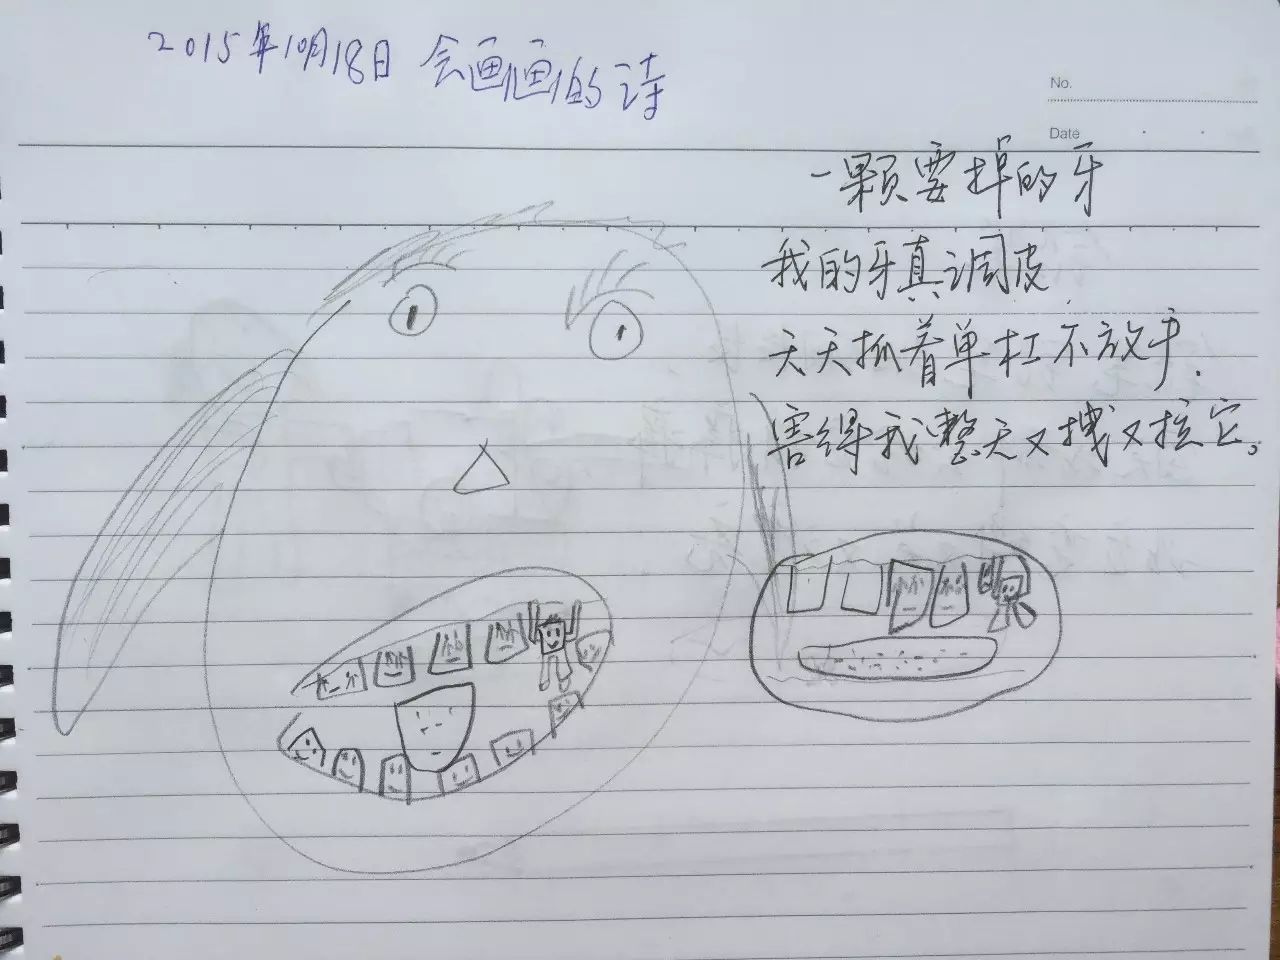 2015年10月18日 会画画的诗
No.
Date
一颗要掉的牙
我的牙真调皮
天天抓着单杠不放手.
害得我整天又拽又拉它。